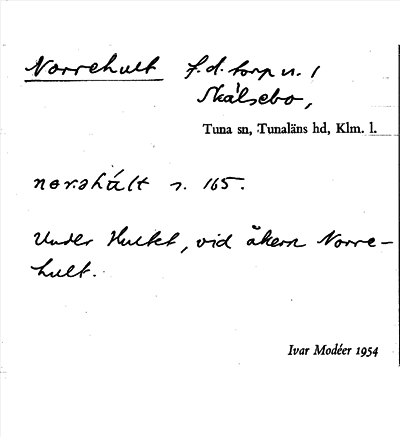 Norrehult f.d. torp u. 1
Skälsebo,
Tuna sn, Tunaläns hd, Klm. l.
nor:əhúlt s. 165.
Under Hultet, vid åkern Norre-
hult.
Ivar Modéer 1954